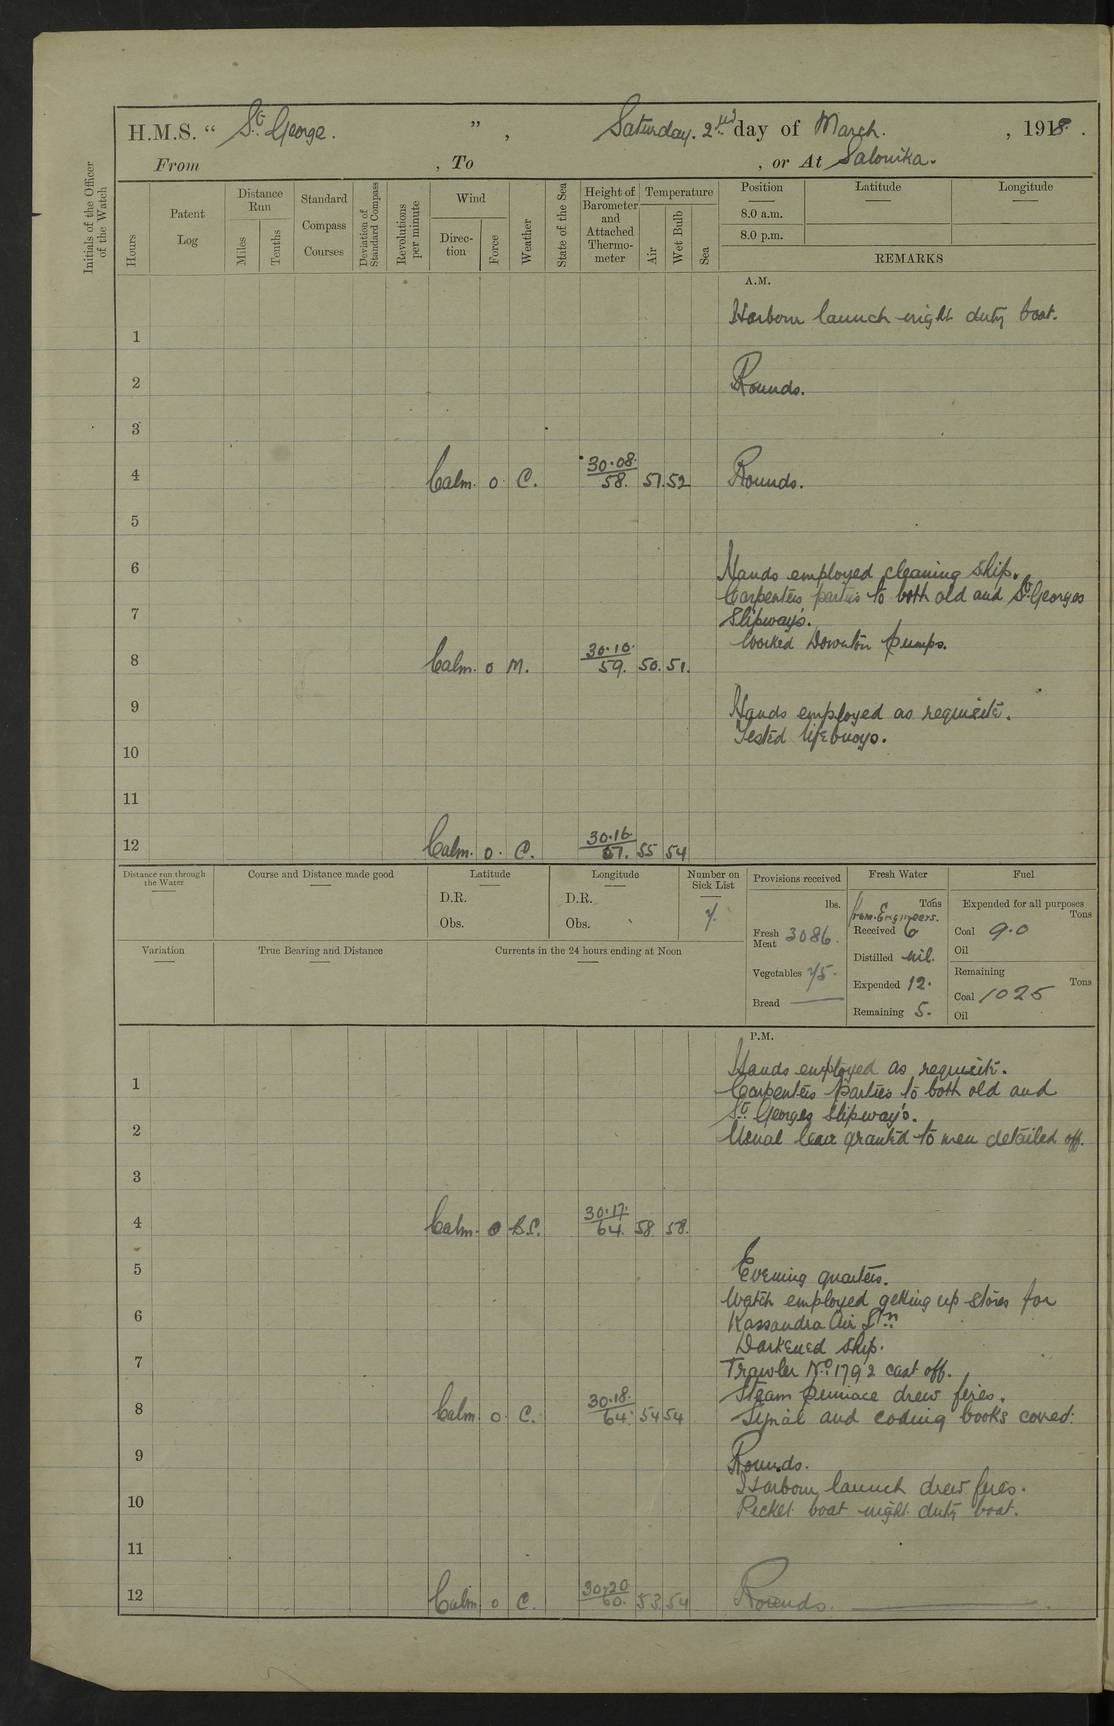 H.M.S. “ St George. ” , Saturday. 2nd day of March. , 1918.
From , To , or At Salonika.
Initials of the Officer of the Watch
Hours
Patent Log
Distance Run
Miles
Tenths
Standard Compass Courses
Deviation of Standard Compass
Revolutions per minute
Wind
Direc-tion
Force
Weather
State of the Sea
Height of Barometer and Attached Thermo-meter
Temperature
Air
Wet Bulb
Sea
Position Latitude Longitude
8.0 a.m.
8.0 p.m.
REMARKS
A.M.
Harbour launch night duty boat.
1
2 Rounds.
3
4 Calm. 0 C. 30.08. 58. 51. 52 Rounds.
5
6 Hands employed cleaning ship.
Carpenters parties to both old and St Georges
7 Slipway's.
Worked Downton pumps.
8 Calm. 0 M. 30.10. 59. 50. 51.
9 Hands employed as requisite.
Tested lifebuoys.
10
11
12 Calm. 0. C. 30.16. 61. 55 54
Distance run through the Water
Course and Distance made good
Latitude
D.R.
Obs.
Longitude
D.R.
Obs.
Number on Sick List
7.
Provisions received
lbs.
Fresh Meat 3086.
Vegetables 75.
Bread
Fresh Water
Tons
from Engineers.
Received 6
Distilled nil.
Expended 12.
Remaining 5.
Fuel
Expended for all purposes
Tons
Coal 9.0
Oil
Remaining
Tons
Coal 1025
Oil
Variation
True Bearing and Distance
Currents in the 24 hours ending at Noon
P.M.
Hands employed as requisite.
1 Carpenters parties to both old and
St Georges Slipway's.
2 Usual leave granted to men detailed off.
3
4 Calm. 0 B.C. 30.17. 64. 58. 58.
5 Evening quarters.
Watch employed getting up stores for
6 Kassandra Air Stn
Darkened ship.
7 Trawler No. 1792 cast off.
Steam pinnace drew fires.
8 Calm 0. C. 30.18. 64. 54 54 Signal and coding books corred:
9 Rounds.
Harbour launch drew fires.
10 Picket boat night duty boat.
11
12 Calm 0 C. 30.20 60. 53. 54 Rounds.